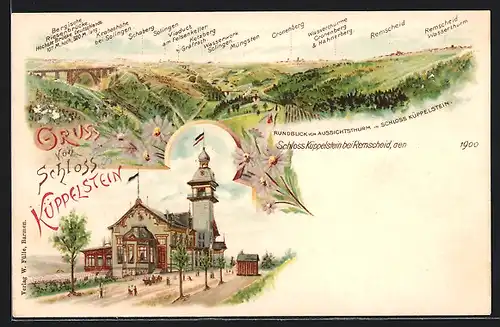 Bergische
Riesen-Brücke
Höchste Brücke Deutschlands
107 M. hoch, 500 M. lang
Krahnehöhe
bei Solingen
Schaberg
Solingen
Viaduct
am Felsenkeller
Kotzberg
Gräfrath
Wasserwerk
Solingen
Müngsten
Cronenberg
Wasserthürme
Cronenberg
& Hahnerberg
Remscheid
Remscheid
Wasserthurm
RUNDBLICK VOM AUSSICHTSTHURM IN SCHLOSS KÜPPELSTEIN.
Schloss Küppelstein bei Remscheid, den 1900
GRUSS
von
Schloss
KÜPPELSTEIN
Verlag W. Fülle, Barmen.